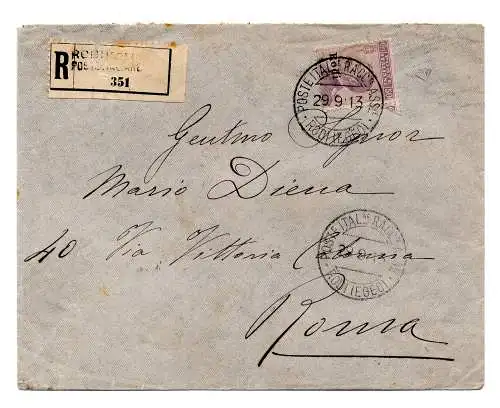 R RODI (EGEO)
POSTE ITALIANE
351
POSTE ITAL. RACC. ASSE.
29.9.13
RODI (EGEO)
Gentmo Signor
Mario Diena
40 Via Vittoria Colonna
POSTE ITAL. RACC.
29.9.
RODI (EGEO)
Roma